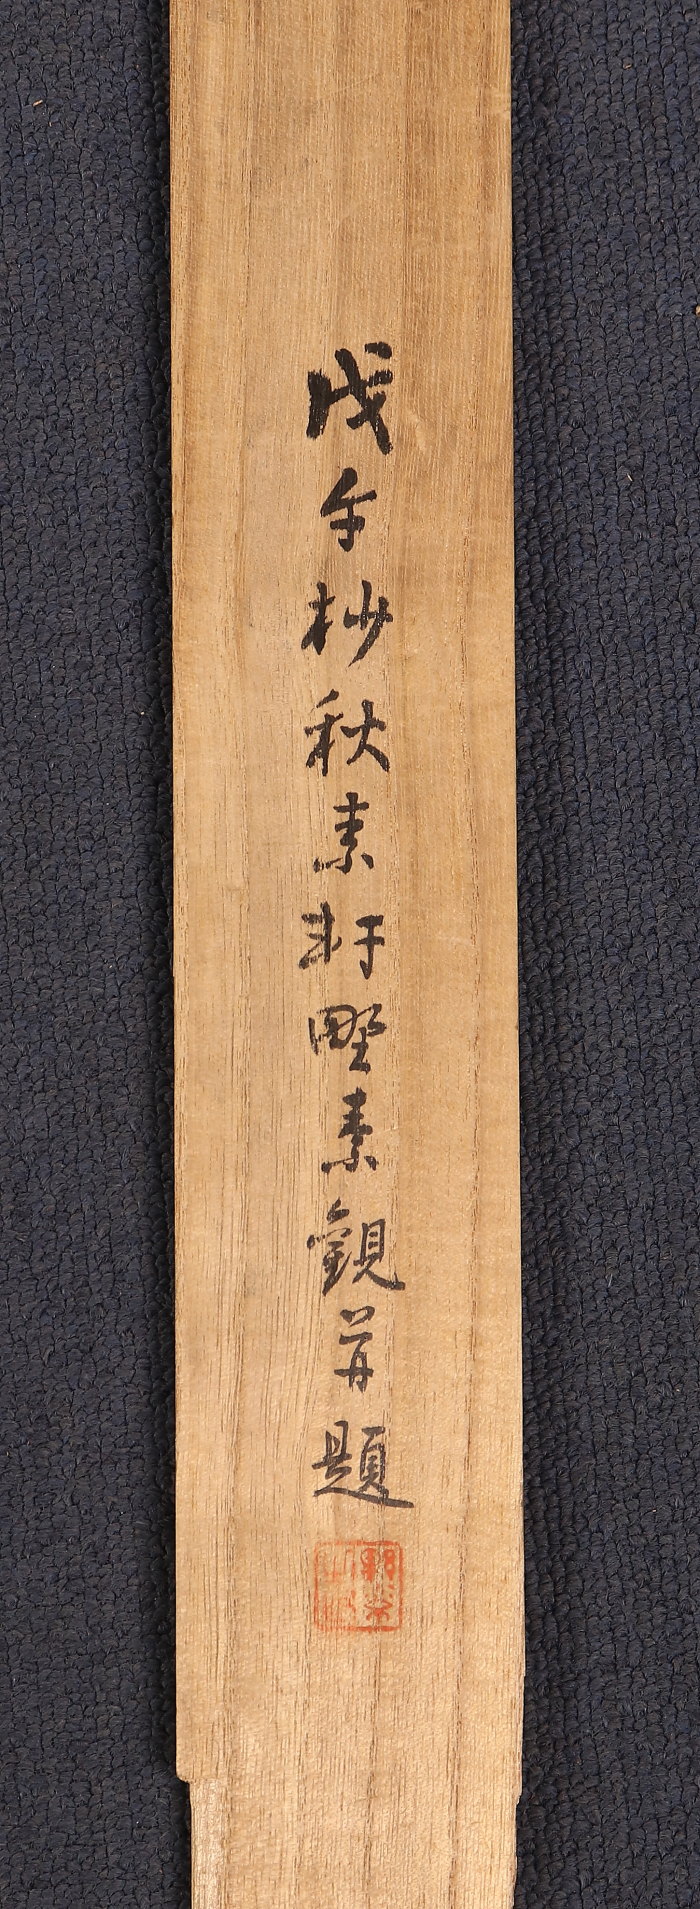 戊午杪秋素軒野素觀并題